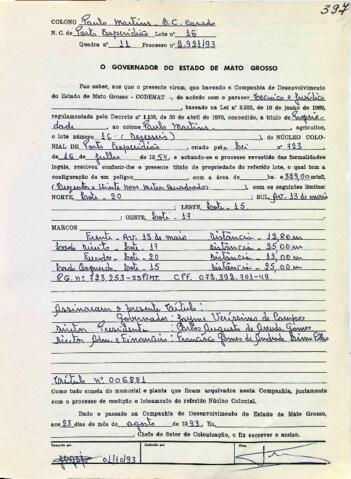 397
COLONO Paulo Martins - B.C. Casado
N. C. de Porto Esperidião Lote nº 16
Quadra nº 11 Processo nº 2.921/93
O GOVERNADOR DO ESTADO DE MATO GROSSO
Faz saber, aos que o presente virem, que havendo a Companhia de Desenvolvimento
do Estado de Mato Grosso - CODEMAT -, de acordo com o parecer Técnico e Jurídico
, baseada na Lei nº 2.933, de 10 de junho de 1969,
regulamentada pelo Decreto nº 1.138, de 30 de abril de 1970, concedido, a título de Proprie-
dade, ao colono Paulo Martins, agricultor,
o lote número 16 (Dezesseis), do NÚCLEO COLO-
NIAL DE Porto Esperidião, criado pela Lei nº 723
de 16 de julho de 1954, e achando-se o processo revestido das formalidades
legais, resolveu conferir-lhe o presente título de propriedade do referido lote, o qual tem a
configuração de um polígono com a área de ha 323,00 mts²,
(Trezentos e Vinte três Metros Quadrados), com os seguintes limites:
NORTE, Lote - 20; SUL, Av. 13 de maio
; LESTE, Lote - 15.
; OESTE, Lote - 17
MARCOS
Frente - Av. 13 de maio Distância - 12,80 m
Lado Direito - Lote - 17 Distância - 25,00 m
Fundo - Lote - 20 Distância - 13,00 m
Lado Esquerdo - Lote - 15 Distância - 25,00 m
R.G. nº 723.953-SSP/MT. C.P.F. 073.392.701-49
Assinaram o presente título:
Governador: Jayme Veríssimo de Campos
Diretor Presidente: Carlos Augusto de Arruda Gomes
Diretor Adm. e Financeiro: Francisco Gomes de Andrade Lima Filho
Título nº 006881
Como tudo consta do memorial e planta que ficam arquivados nesta Companhia, juntamente
com o processo de medição e loteamento do referido Núcleo Colonial.
Dado e passado na Companhia de Desenvolvimento do Estado de Mato Grosso,
aos 23 dias do mês de agosto de 1993. Eu,
, Chefe do Setor de Colonização, o fiz escrever e assino.
Transcrito por Conferido por Visto
01/10/93